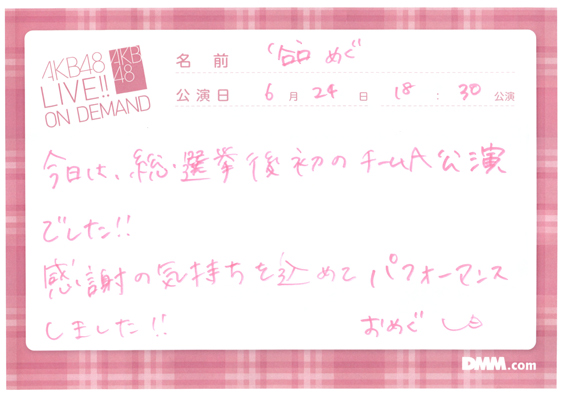 AKB48
LIVE!!
ON DEMAND
AKB
48
名前 谷口 めぐ
公演日 6月24日 18:30公演
今日は、総選挙後初のチームA公演
でした!!
感謝の気持ちを込めてパフォーマンス
しました!!
おめぐ
DMM.com